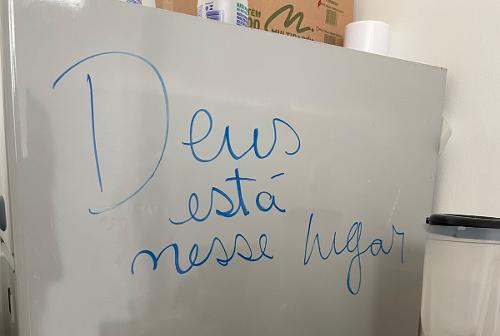 Deus
está
nesse lugar